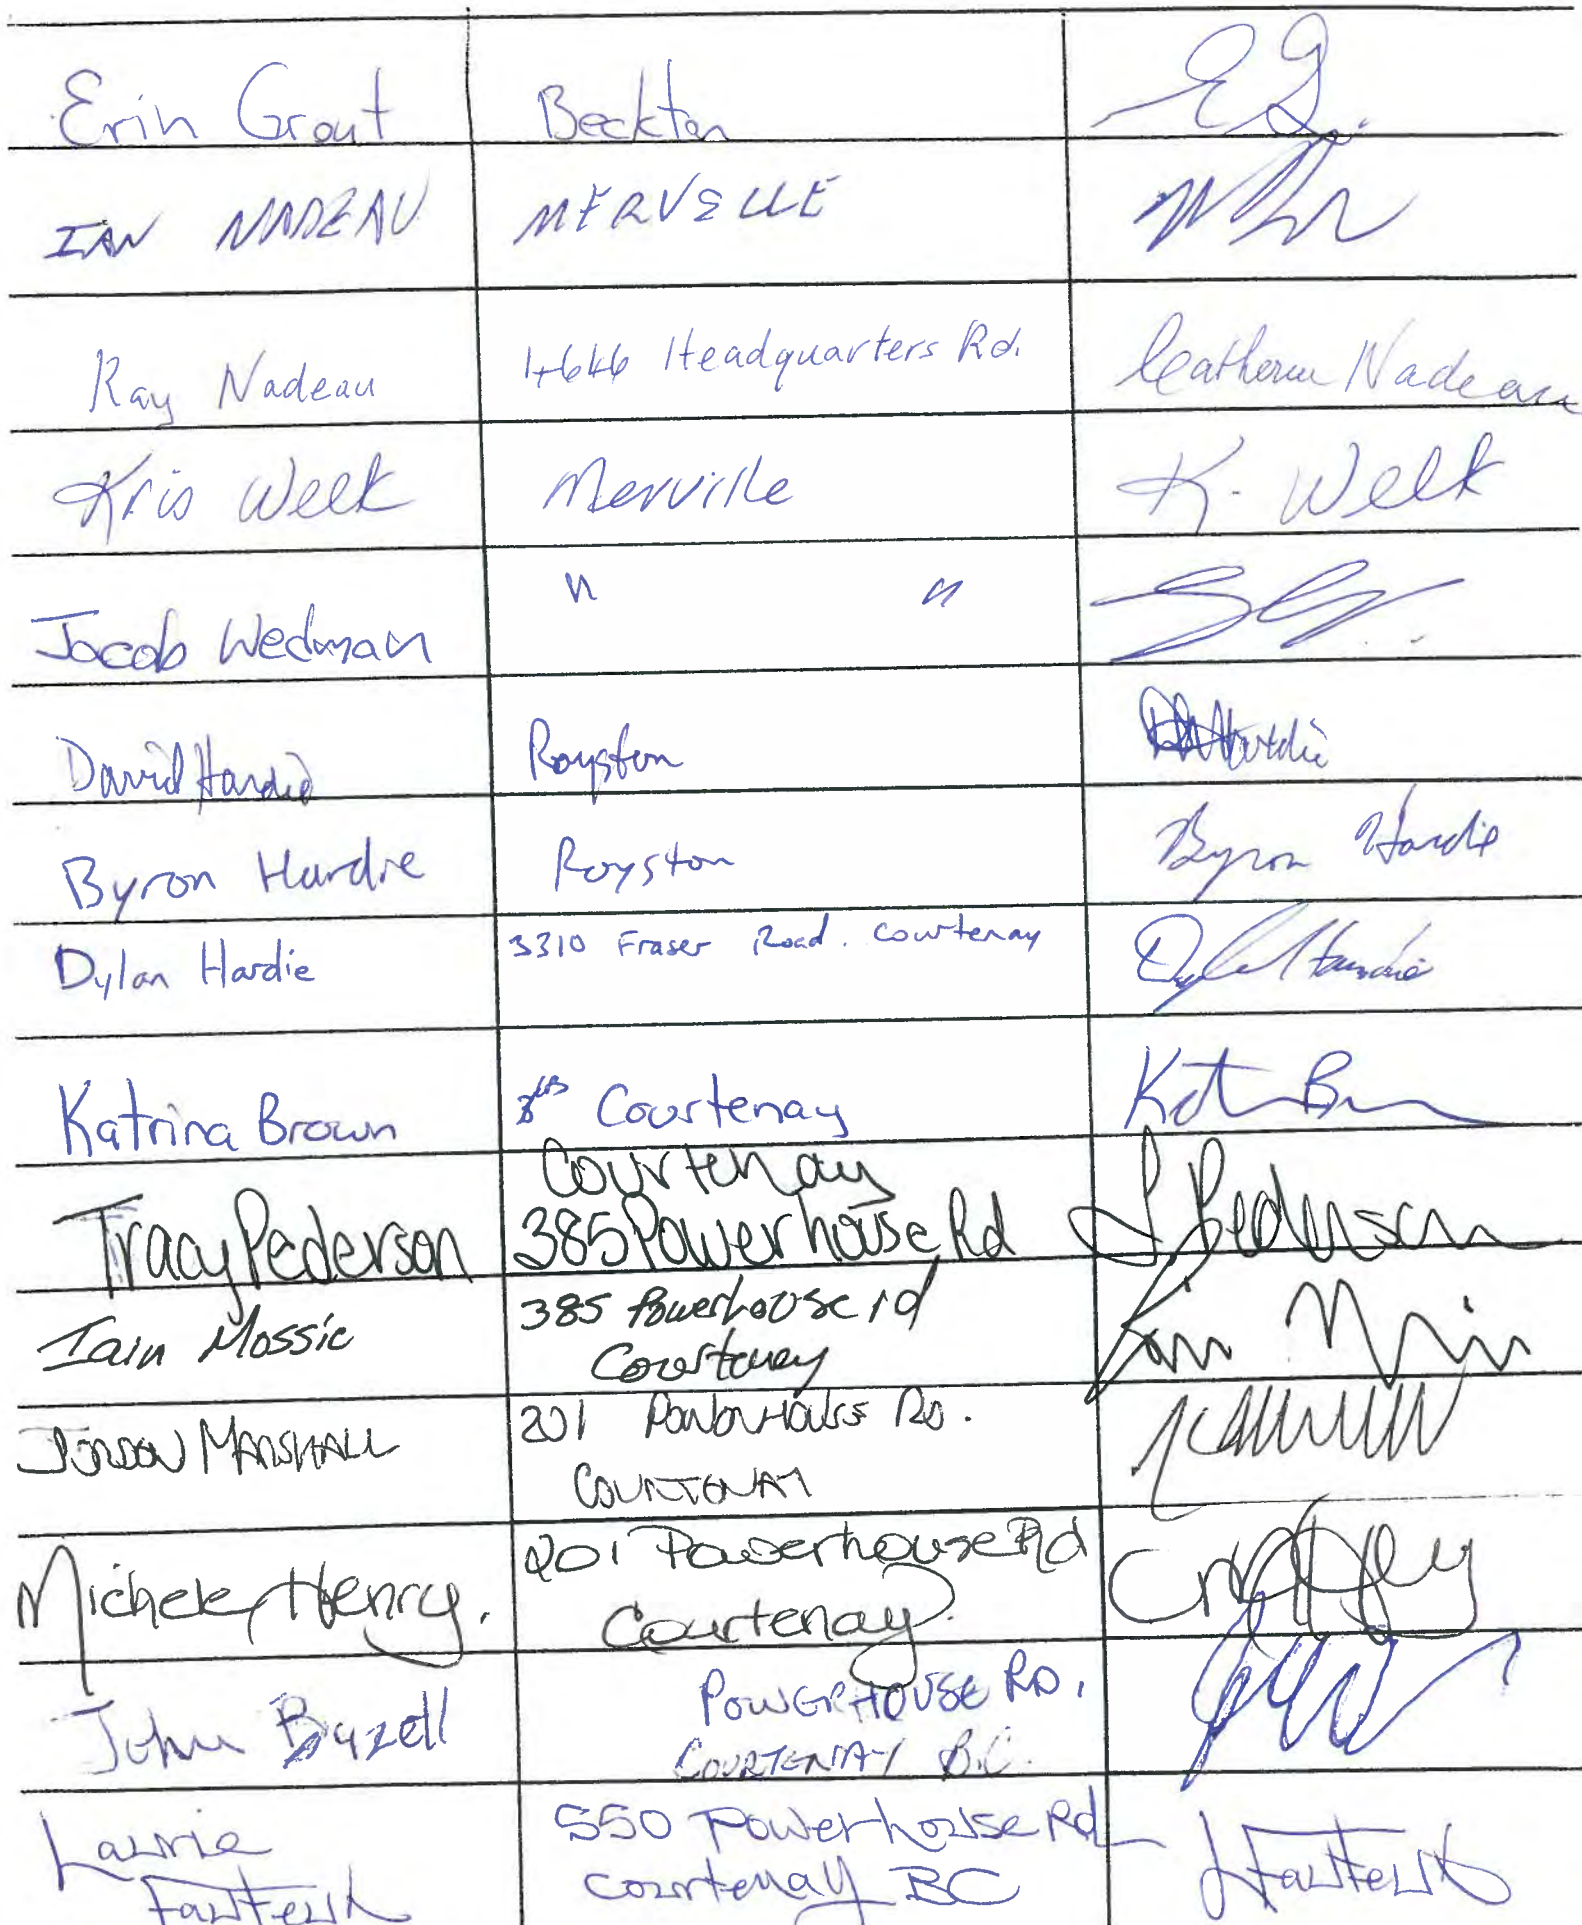 Erin Grout Beckton E G.
IAN NADEAU MERVELLE
Ray Nadeau 4646 Headquarters Rd. Catherine Nadeau
Kris Welk Merville K. Welk
Jacob Wedman " "
David Hardie Royston Hardie
Byron Hardie Royston Byron Hardie
Dylan Hardie 3310 Fraser Road. Courtenay Dylan Hardie
Katrina Brown Courtenay
Courtenay
Tracy Pederson 385 Powerhouse Rd T Pederson
Iain Mossie 385 Powerhouse rd
Courtenay
JORDON MARSHALL 201 POWERHOUSE RD.
COURTENAY
Michele Henry. 201 Powerhouse Rd
Courtenay.
John Bazell POWERHOUSE RD.
COURTENAY B.C.
Laurie 550 Powerhouse Rd
Courtenay BC